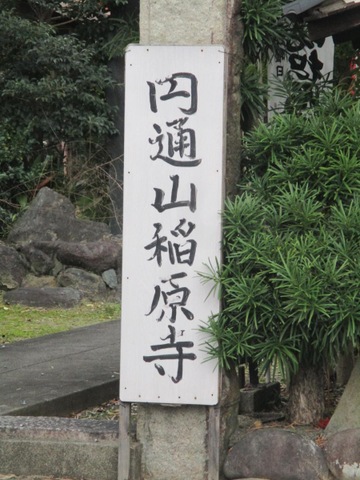 円通山稲原寺